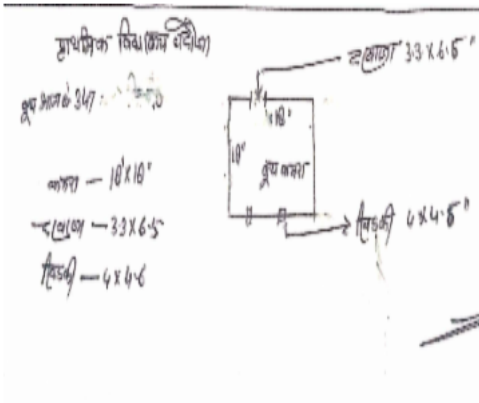 प्राथमिक विद्यालय
बूथ भाग सं 347
कमरा — 18'x18"
दरवाजा — 3.3x6.5
खिडकी — 4x4.6
दरवाजा 3.3x6.5"
x18'
18'
बूथ कमरा
खिडकी 4x4.5"